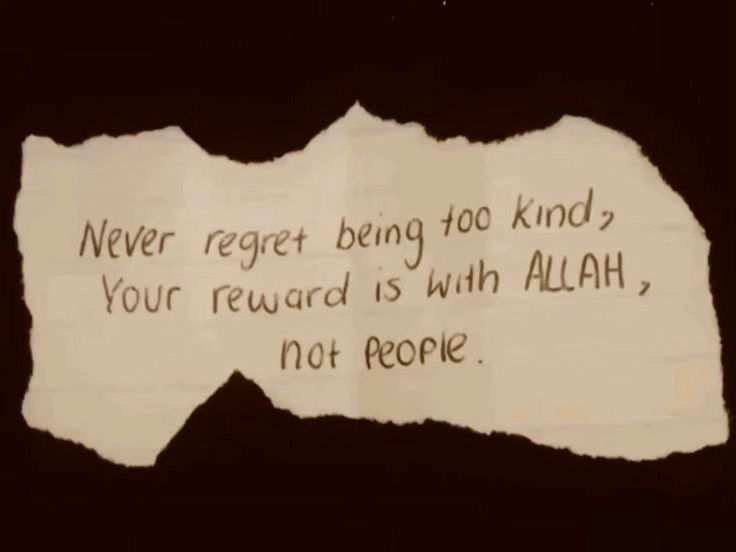 Never regret being too kind,
Your reward is with ALLAH,
not people.